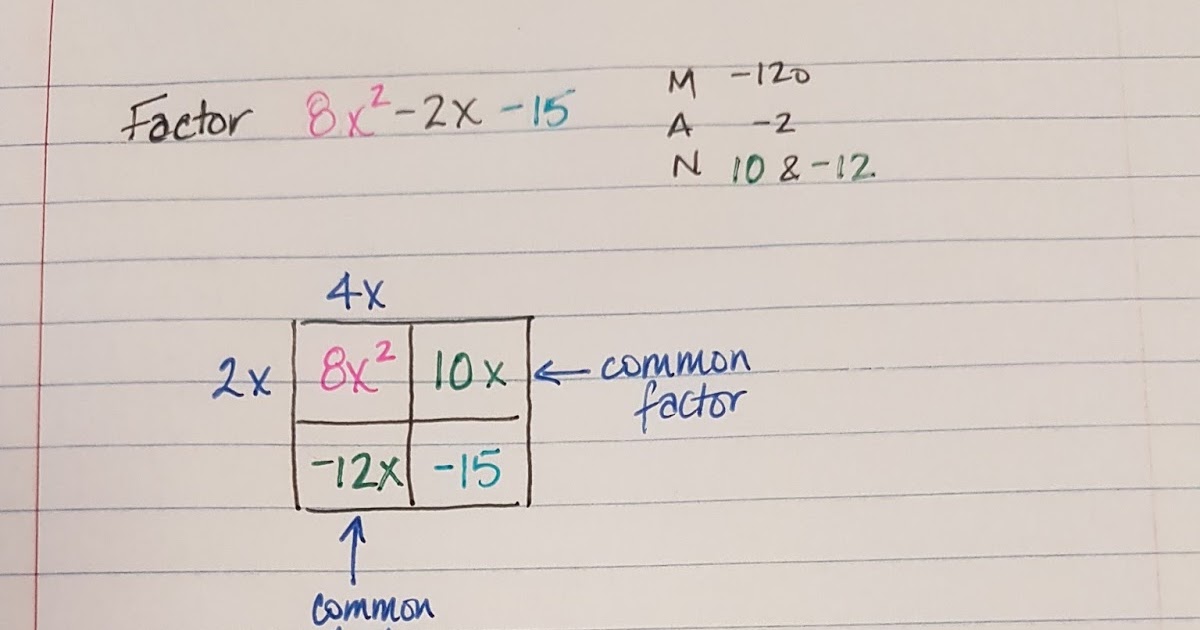 Factor 8x² - 2x - 15
M -120
A -2
N 10 & -12.
4x
2x 8x² 10x ← common
factor
-12x -15
↑
common